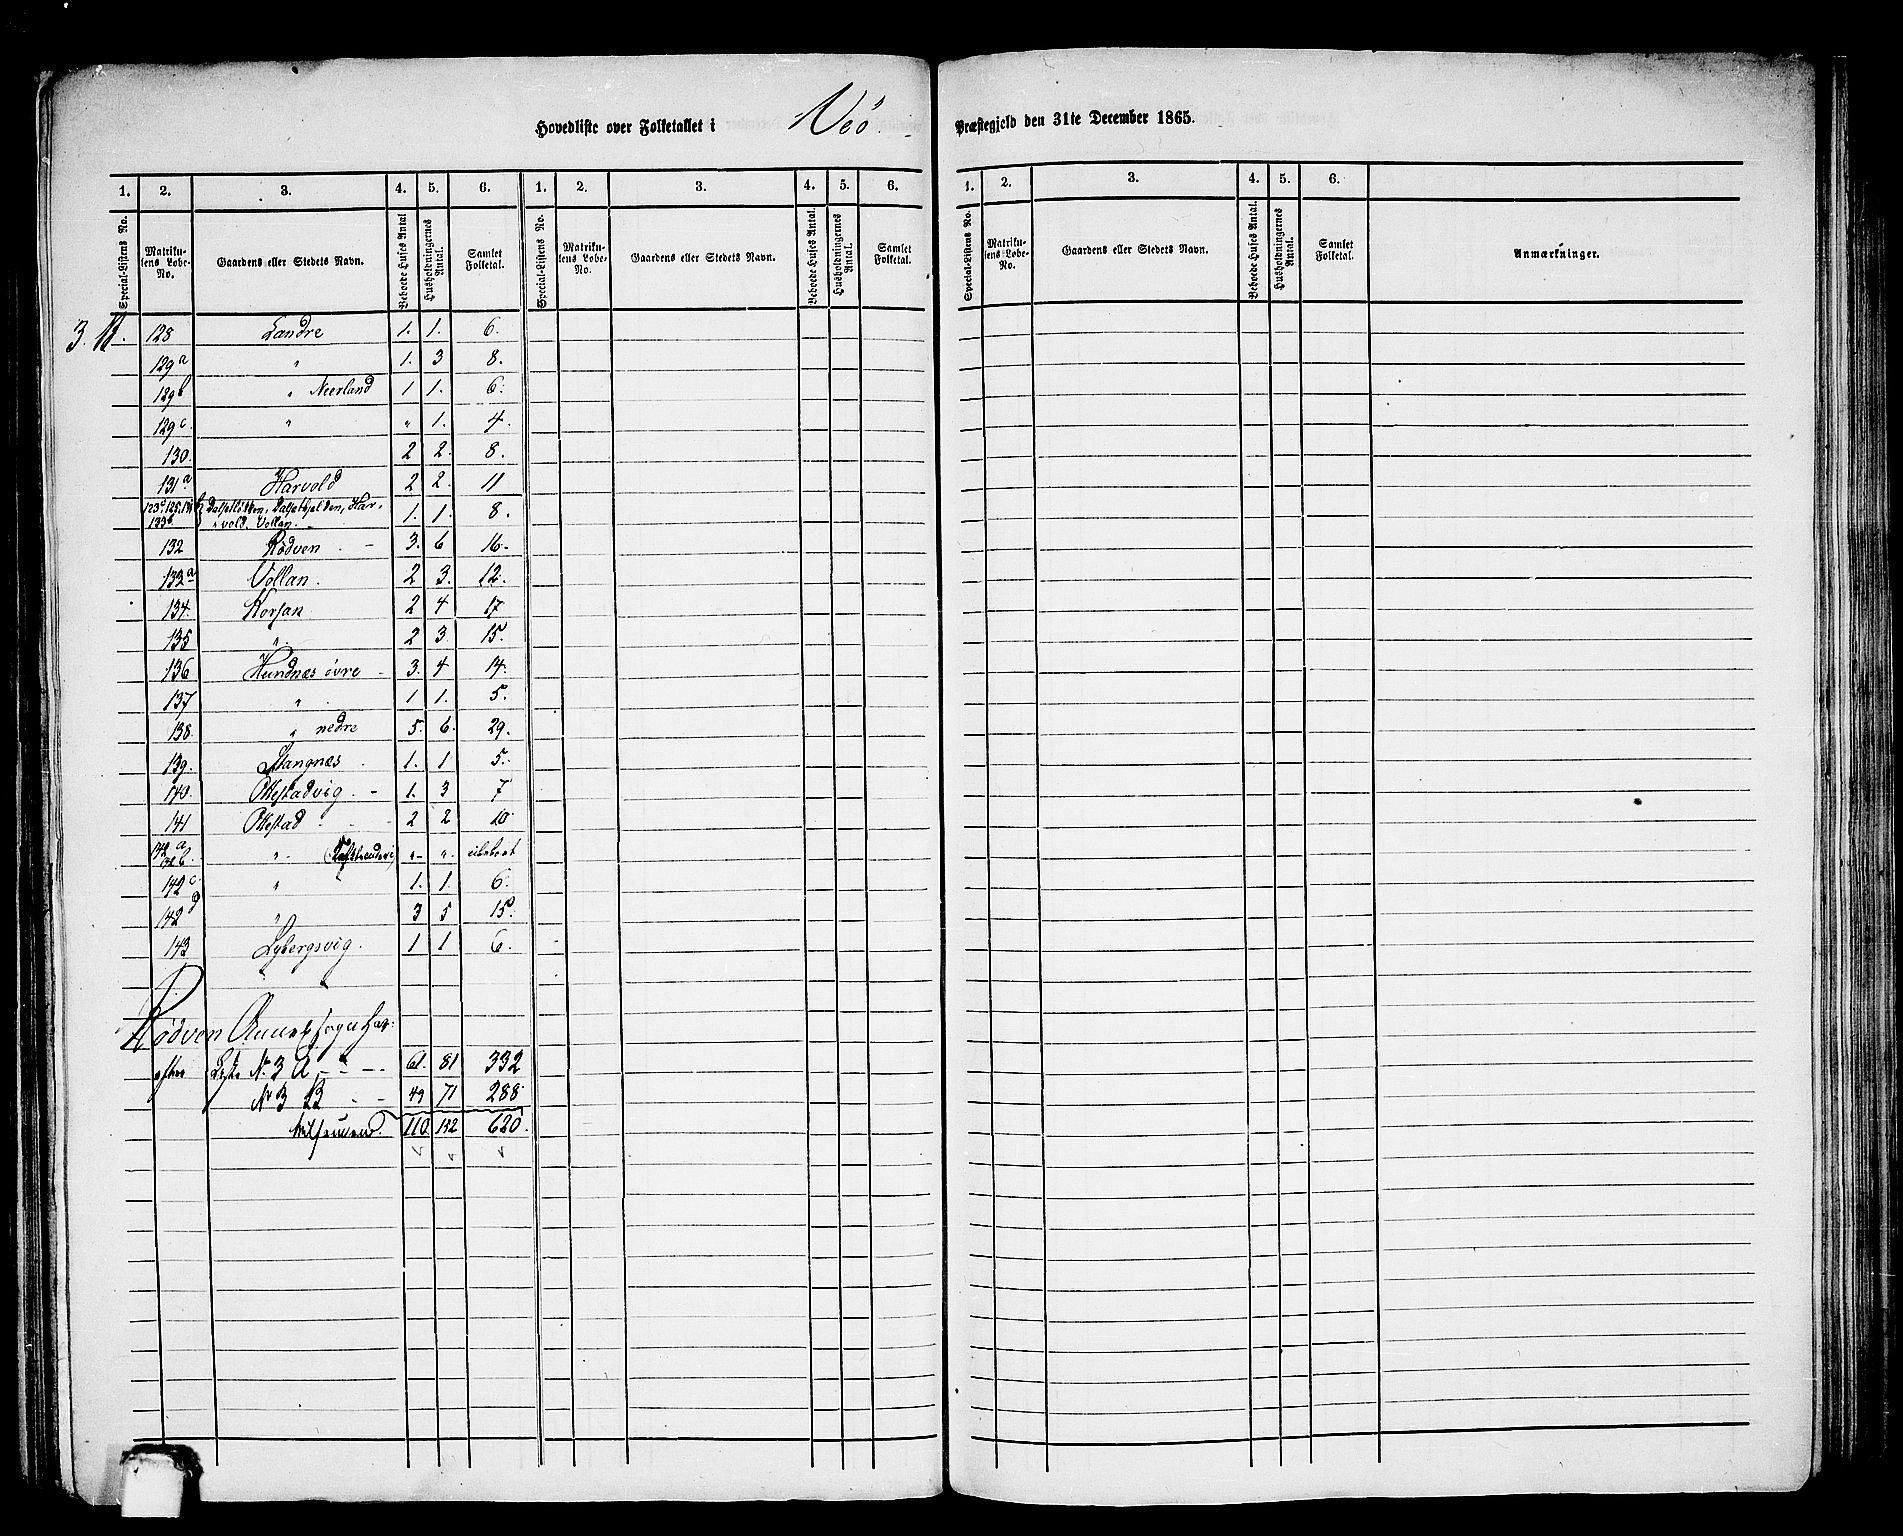 Hovedliste over Folketallet i Veø Præstegjeld den 31te December 1865.
1. 2. 3. 4. 5. 6. 1. 2. 3. 4. 5. 6. 1. 2. 3. 4. 5. 6.
Special-Listens No. Matrikulens Løbe-No. Gaardens eller Stedets Navn. Beboede Huses Antal Husholdningernes Antal. Samlet Folketal. Special-Listens No. Matrikulens Løbe-No. Gaardens eller Stedets Navn. Beboede Huses Antal. Husholdningernes Antal. Samlet Folketal. Special-Listens No. Matrikulens Løbe-No. Gaardens eller Stedets Navn. Beboede Huses Antal. Husholdningernes Antal. Samlet Folketal. Anmærkninger.
3. B. 128 Landre 1. 1. 6.
129a " 1. 3 8.
129b " Neerland 1 1. 6.
129c. " " 1. 4.
130. 2 2. 8.
131a. Harvold 2 2. 11
1. 1. 8.
vold, Vollan.
132 Rødven 3. 6 16.
133a Vollan. 2 3. 12.
134. Korsan 2 4 17
135 " 2 3. 15.
136 Hundnæs øvre 3. 4 14.
137 " 1 1. 5.
138. " nedre 5. 6. 29.
139. Stangnæs 1. 1 5.
140. Ottestadvig. 1. 3 7
141 Ottestad 2 2 10
142 a " " "
142 b.
142c " 1. 1. 6.
142d " 3 5 15.
143 Lybergsvig. 1 1 6.
Rødven Annexsogn har:
efter Liste No. 3 A 61. 81 332
No 3 B 49 71 288.
Tilsammen. 110. 152 620.